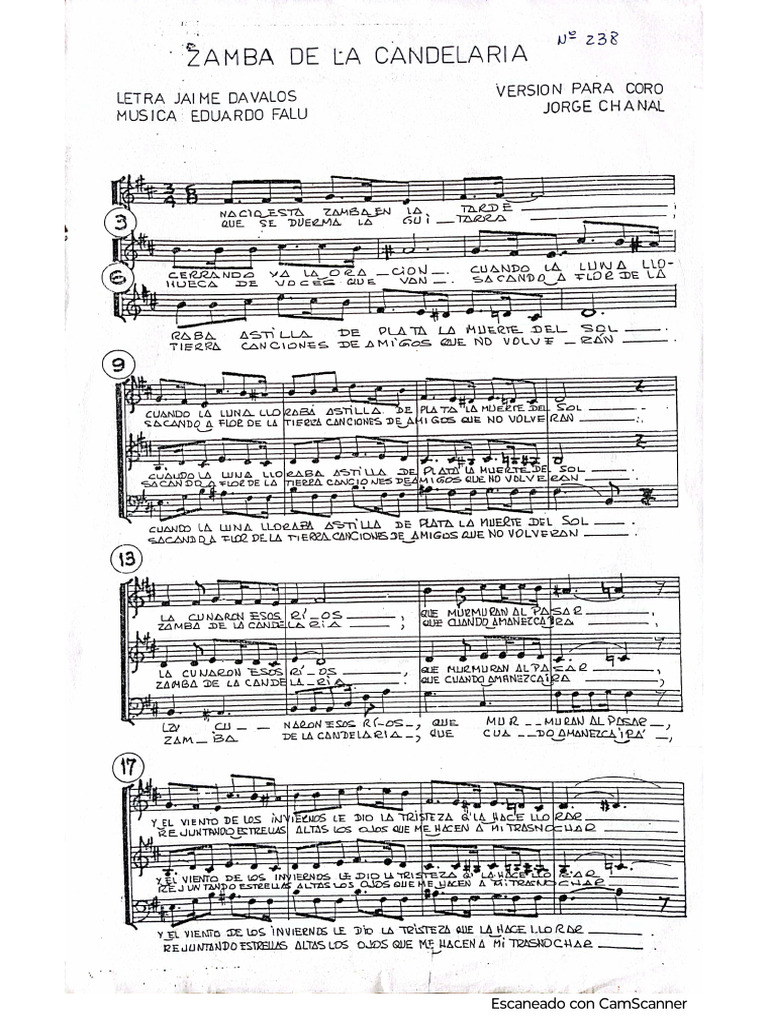 Nº 238
ZAMBA DE LA CANDELARIA
LETRA JAIME DAVALOS
MUSICA EDUARDO FALU
VERSION PARA CORO
JORGE CHANAL
3 4 6 8
NACIO ESTA ZAMBA EN LA TARDE ____
QUE SE DUERMA LA GUI_TARRA ____
3
CERRANDO YA LA ORA_CION__. CUANDO LA LUNA LLO-
HUECA DE VOCES QUE VAN__. SACANDO_A FLOR DE LA
6
RABA ASTILLA DE PLATA LA MUERTE DEL SOL ____.
TIERRA CANCIONES DE AMIGOS QUE NO VOLVE_RÁN ____.
9
CUANDO LA LUNA LLORABA ASTILLA DE PLATA LA MUERTE DEL SOL ____.
SACANDO_A FLOR DE LA TIERRA CANCIONES DE AMIGOS QUE NO VOLVERAN ____.
CUANDO LA LUNA LLORABA ASTILLA DE PLATA LA MUERTE DEL SOL ____.
SACANDO_A FLOR DE LA TIERRA CANCIONES DE AMIGOS QUE NO VOLVERAN ____.
CUANDO LA LUNA LLORABA ASTILLA DE PLATA LA MUERTE DEL SOL ____.
SACANDO_A FLOR DE LA TIERRA CANCIONES DE AMIGOS QUE NO VOLVERAN ____.
13
LA CUNARON ESOS RÍ_OS ____, QUE MURMURAN AL PASAR ____,
ZAMBA DE LA CANDELARIA ____, QUE CUANDO AMANEZCAIRA ____,
LA CUNARON ESOS RÍ_OS ____, QUE MURMURAN AL PASAR ____,
ZAMBA DE LA CANDELA_RIA ____, QUE CUANDO AMANEZCAIRA ____,
LA CU__NARON ESOS RÍ_OS_, QUE MUR__MURAN AL PASAR_,
ZAM_BA DE LA CANDELARIA_, QUE CUA__DO AMANEZCAIRÁ_,
17
Y EL VIENTO DE LOS INVIERNOS LE DIO LA TRISTEZA Q'LA HACE LLORAR ____.
REJUNTANDO ESTRELLAS ALTAS LOS OJOS QUE ME HACEN A MI TRASNOCHAR ____.
Y EL VIENTO DE LOS INVIERNOS LE DIO LA TRISTEZA Q'LA HACE LLO RAR ____.
REJUNTANDO ESTRELLAS ALTAS LOS OJOS QUE ME HACEN A MI TRASNOCHAR ____.
Y EL VIENTO DE LOS INVIERNOS LE DIO LA TRISTEZA QUE LA HACE LLORAR ____.
REJUNTANDO ESTRELLAS ALTAS LOS OJOS QUE ME HACEN A MI TRASNOCHAR ____.
Escaneado con CamScanner